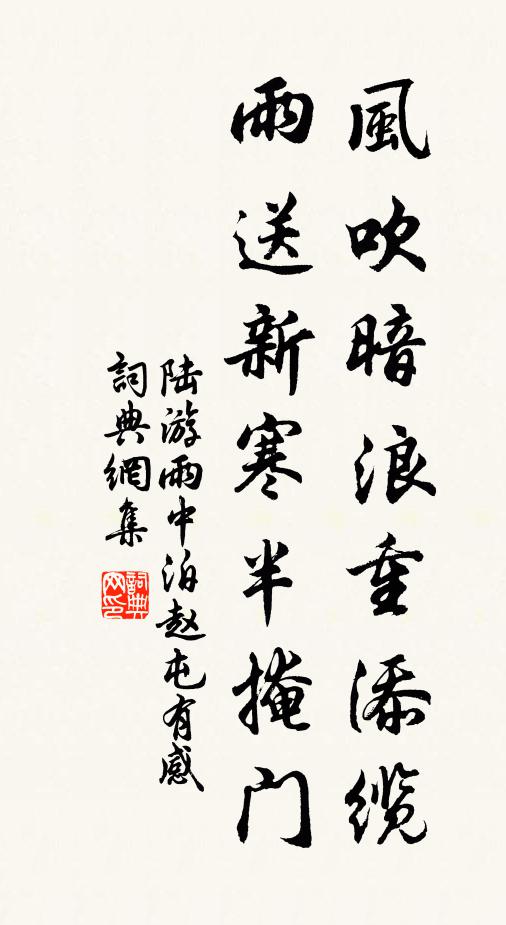 風吹暗浪重添缆
雨送新寒半掩门
陆游雨中泊赵屯有感
詞典網集
詞典网印